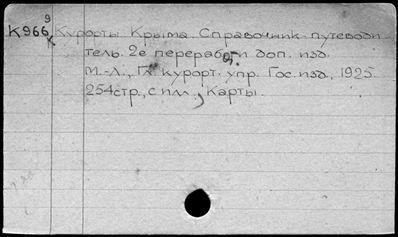 К966 Курорты Крыма. Справочник-путеводи-
тель. 2е перераб. и доп. изд.
М.-Л., Гл. курорт. упр. Гос. изд., 1925.
254стр., с илл., карты.